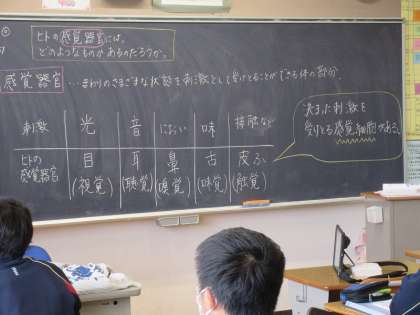 ヒトの感覚器官には、
どのようなものがあるのだろうか。
感覚器官…まわりのさまざまな状態を刺激として受けとることができる体の部分.
刺激 光 音 におい 味 接触など
ヒトの感覚器官 目(視覚) 耳(聴覚) 鼻(嗅覚) 舌(味覚) 皮ふ(触覚)
決まった刺激を
受けとる感覚細胞がある。